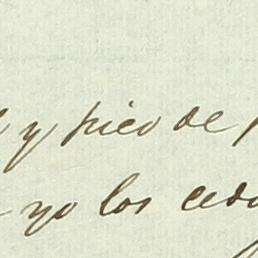 y pico de
yo los cedo